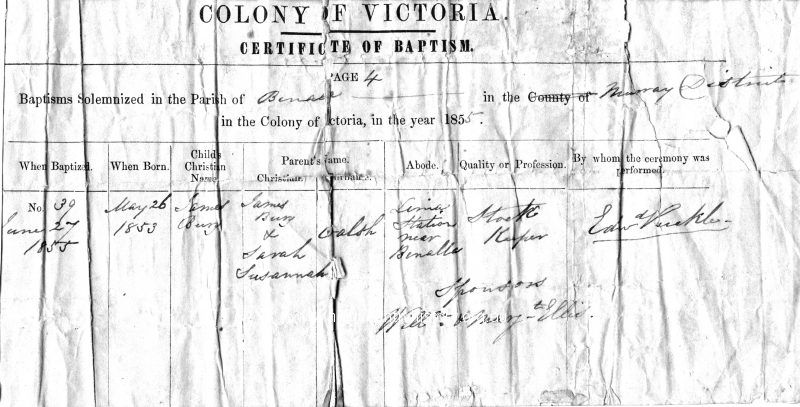 COLONY OF VICTORIA.
CERTIFICATE OF BAPTISM.
PAGE 4
Baptisms Solemnized in the Parish of Benalla in the County of Murray District
in the Colony of Victoria, in the year 1855.
When Baptized. When Born. Child's Christian Name. Parent's Name. Christian. Surname. Abode. Quality or Profession. By whom the ceremony was performed.
No. 39 May 26 James James Station Stock
June 27 1853 Burr Burr Walsh near Keeper
1855 & Benalla
Sarah
Susannah
Sponsors
Willm & Mary Ellis.